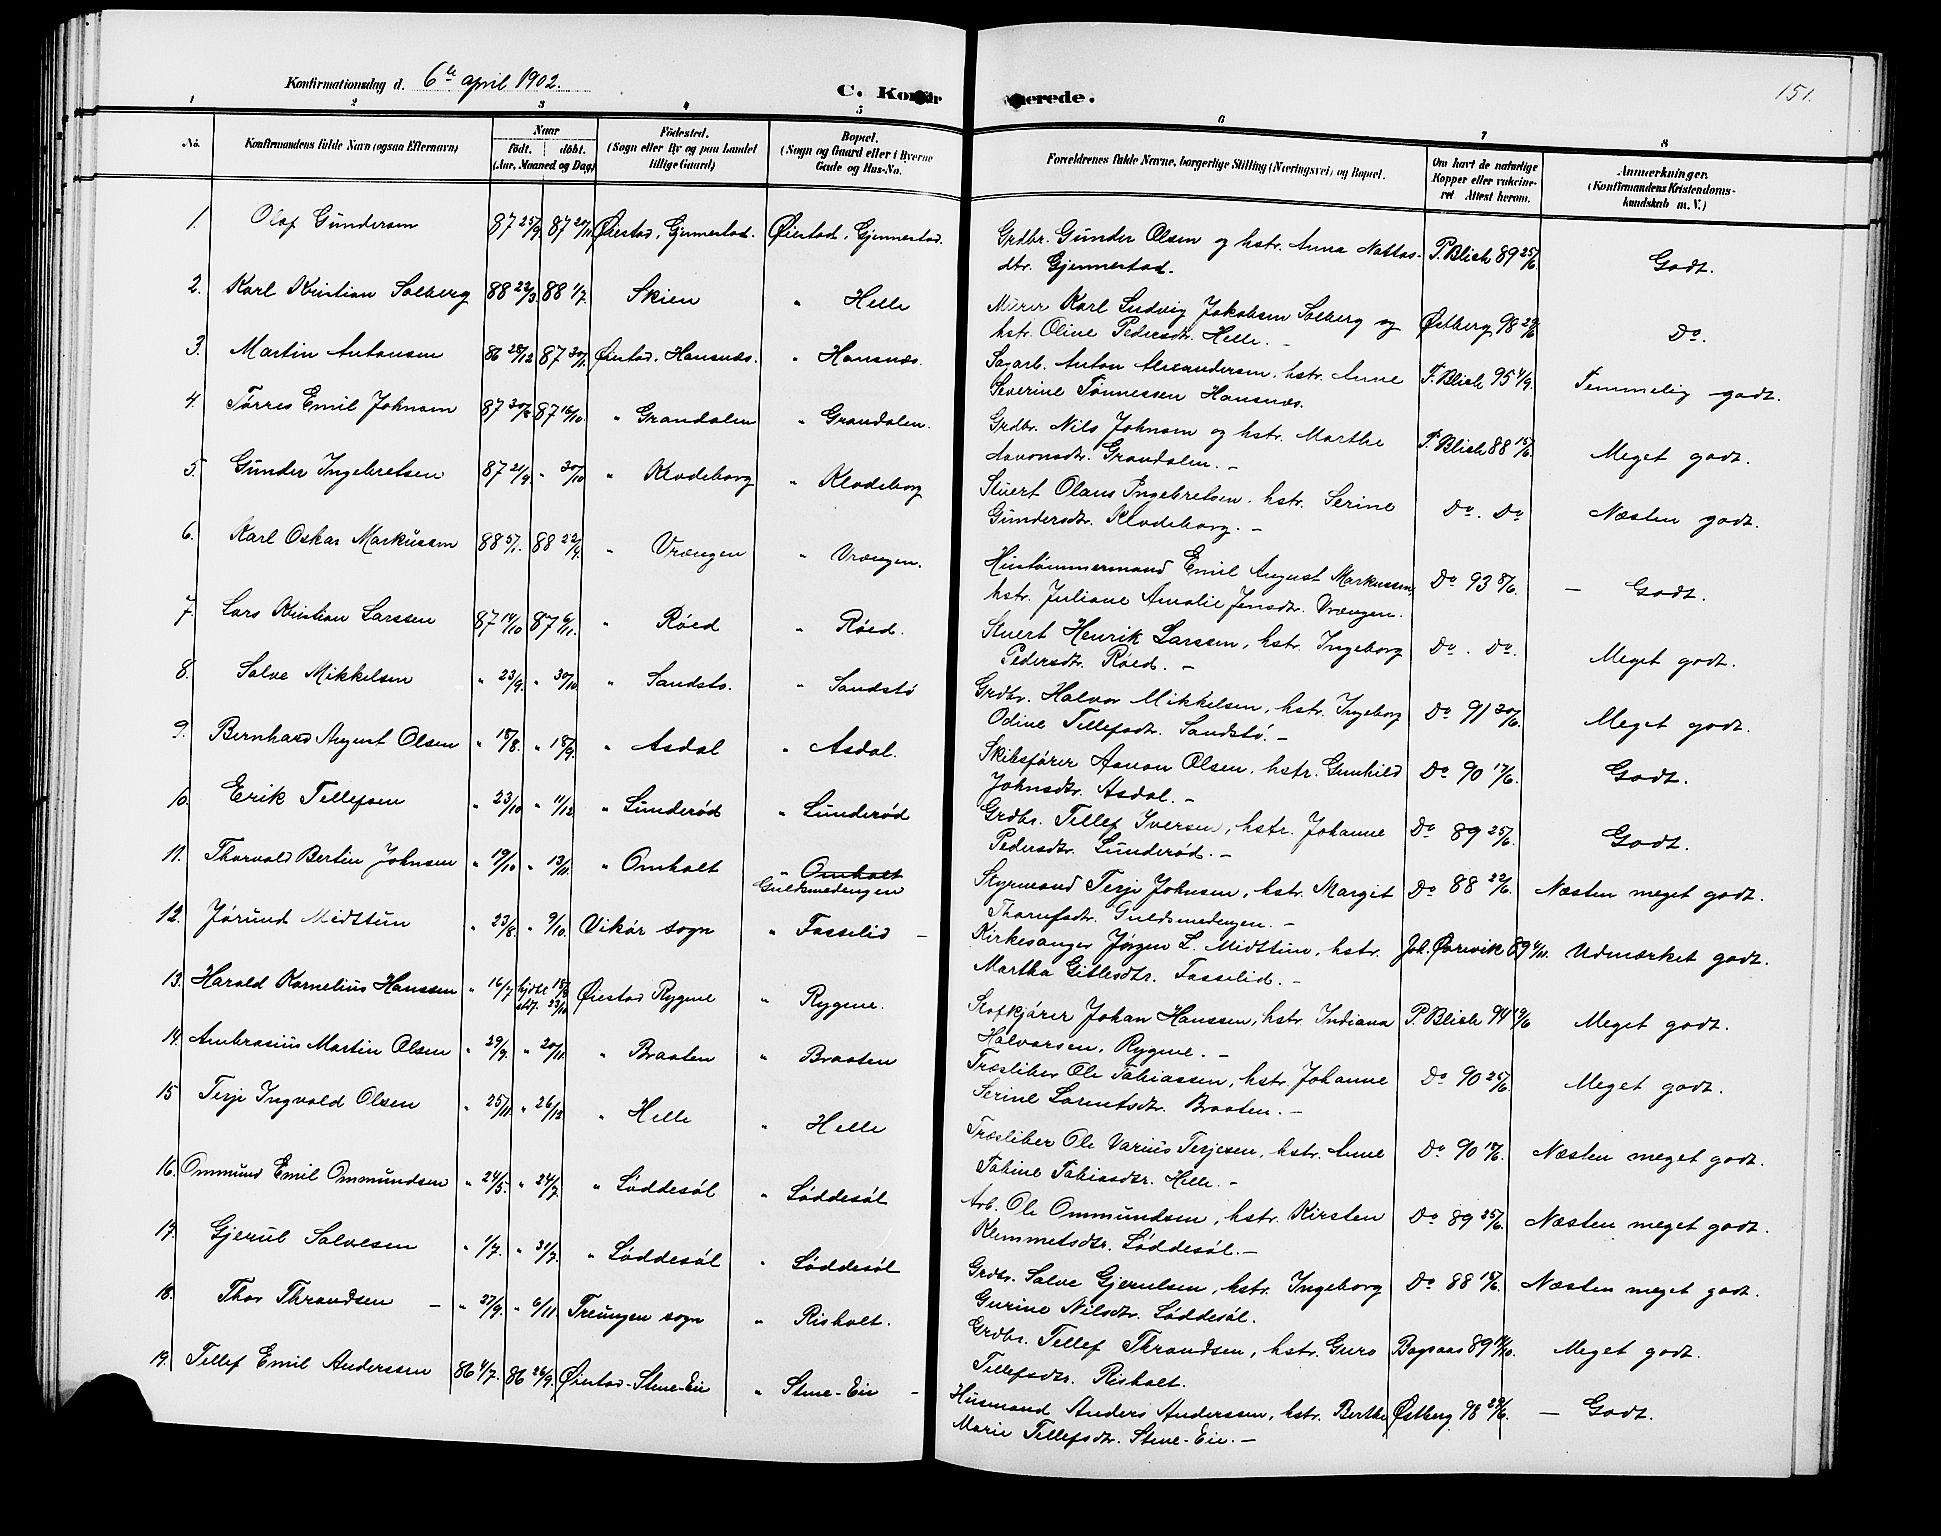 Konfirmationsdag d. 6te april 1902.
C. Konfir merede.
151.
1 2 3 4 5 6 7 8
No. Konfirmandens fulde Navn (ogsaa Efternavn) Naar født. døbt. (Aar, Maaned og Dag) Fødested. (Sogn eller By og paa Landet tillige Gaard) Bopæl. (Sogn og Gaard eller i Byerne Gade og Hus-No. Forældrenes fulde Navne, borgerlige Stilling (Næringsvei) og Bopæl. Om havt de naturlige Kopper eller vakcineret Attest herom. Anmerkninger. (Konfirmandens Kristendomskundskab m. V.)
1. Olaf Gundersen 87 25/9 87 20/11 Øiestad, Gjennestad. Øiestad, Gjennestad. Grdbr. Gunder Olsen og hstr. Anna Nattas- P. Blich 89 25/6. Godt.
dtr. Gjennestad.
2. Karl Kristian Solberg 88 22/3 88 1/7. Skien " Helle Murer Karl Ludvig Jakobsen Solberg og Østberg 98 29/6 Do.
hstr. Oline Pedersdtr. Helle. –
3. Martin Antonsen 86 28/12 87 30/1. Øiestad. Hansnæs. " Hansnæs. Sagarb. Anton Alexandersen, hstr. Anne P. Blich 95 4/9. Temmelig godt.
Severine Tønnessen Hansnæs.
4. Tørres Emil Johnsen 87 30/8 87 16/10 " Grandalen " Grandalen. Grdbr. Nils Johnsen og hstr. Marthe P. Blich 88 15/6. Meget godt.
Aavonsdtr. Grandalen. –
5. Gunder Ingebretsen 87 21/9 " 30/10 " Klodeborg " Klodeborg Stuert Olaus Ingebretsen. hstr. Serine Do. Do Næsten godt.
Gundersdtr. Klodeborg. –
6. Karl Oskar Markussen 88 5/1. 88 22/4. " Vrængen " Vrængen. Hustømmermand Emil August Markussen, Do 93 8/6. – Godt.
hstr. Juliane Amalie Jensdtr. Vrængen.
7. Lars Kristian Larssen 87 14/10 87 6/11. " Røed " Røed. Stuert Henrik Larssen, hstr. Ingeborg Do. Do. Meget godt.
Pedersdtr. Røed. –
8. Salve Mikkelsen " 23/9. " 30/10. " Sandstø. " Sandstø Grdbr. Halvor Mikkelsen, hstr. Ingeborg Do 91 30/6. Meget godt.
Odine Tellefsdtr. Sandstø. –
9. Bernhard August Olsen " 18/8. " 18/9. " Asdal " Asdal. Skibsfører Aanon Olsen, hstr. Gunhild Do 90 17/6. Godt.
Johnsdtr. Asdal. –
10. Erik Tellefsen " 23/10 " 11/12 " Lunderød " Lunderød Grdbr. Tellef Iversen, hstr. Johanne Do 89 25/6. Godt.
Pedersdtr. Lunderød. –
11. Thorvald Bertin Johnsen " 19/10 " 13/11. " Omholt " Omholt Guldsmedengen Styrmand Terje Johnsen, hstr. Margit Do 88 22/6. Næsten meget godt.
Thorufsdtr. Guldsmedengen. –
12. Jørund Midttun " 23/8. " 9/10. Vikør sogn " Fosselid – Kirkesanger Jørgen L. Midttun, hstr. Joh. Øvrevik 89 4/11. Udmærket godt.
Martha Gitlesdtr. Fosselid. –
13. Harald Kornelius Hanssen " 16/7 hjdbt 18/8 stf. 23/10 Øiestad Rygene " Rygene. Stofkjører Johan Hanssen, hstr. Indiana P. Blich 94 19/6 Meget godt.
Halvorsen, Rygene. –
14. Ambrosius Martin Olsen " 29/9. " 20/11. " Braaten " Braaten Træsliber Ole Tobiassen, hstr. Johanne Do 90 25/6. Meget godt.
Serine Larentsdtr. Braaten. –
15 Terje Ingvald Olsen " 25/11. " 26/12 " Helle " Helle Træsliber Ole Varius Terjesen, hstr. Anne Do 90 18/6. Næsten meget godt.
Tobine Tobiasdtr. Helle. –
16. Ommund Emil Ommundsen " 24/5. " 24/7. " Løddesøl " Løddesøl Arb. Ole Ommundsen, hstr. Kirsten Do 89 25/6. Næsten meget godt.
Klemmetsdtr. Løddesøl. –
17. Gjerul Salvesen " 1/7. " 31/7. " Løddesøl " Løddesøl Grdbr. Salve Gjerulsen, hstr. Ingeborg Do 88 15/6. Næsten meget godt.
Gurine Nilsdtr. Løddesøl.
18. Thor Throndsen – " 27/9. " 6/11. Treungen sogn " Risholt. Grdbr. Tellef Throndsen, hstr. Guro Bagaas 89 14/10. Meget godt.
Tellefsdtr. Risholt.
19. Tellef Emil Anderssen 86 4/7. 86 26/9. Øiestad-Stene-Eie " Stene-Eie – Husmand Anders Anderssen, hstr. Berthe Østberg 98 29/6. – Godt.
Marie Tellefsdtr. Stene-Eie. –